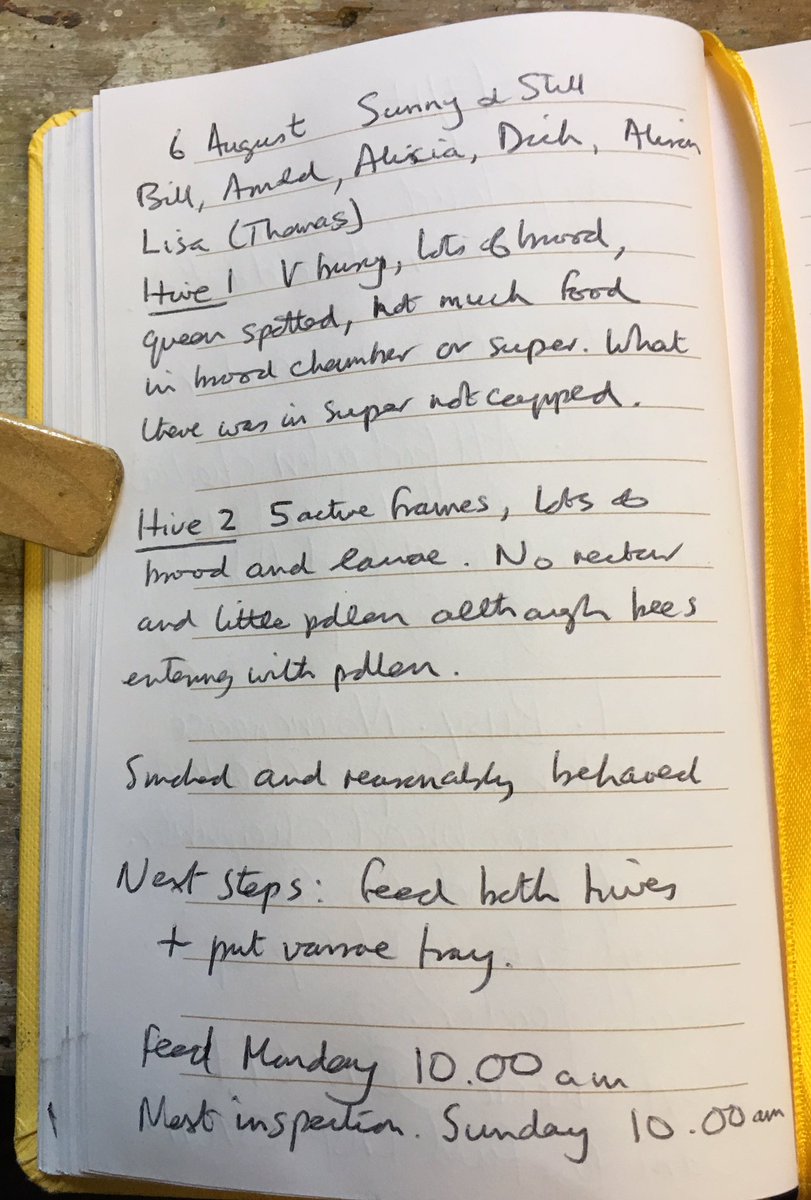 6 August Sunny & Still
Bill, Arnold, Alixia, Dick, Alison
Lisa (Thomas)
Hive 1 V busy, lots of brood,
queen spotted, not much food
in brood chamber or super. What
there was in super not capped.
Hive 2 5 active frames, lots of
brood and larvae. No nectar
and little pollen although bees
entering with pollen.
Smoked and reasonably behaved
Next steps: feed both hives
+ put varroe tray.
Feed Monday 10.00 am
Next inspection. Sunday 10.00 am